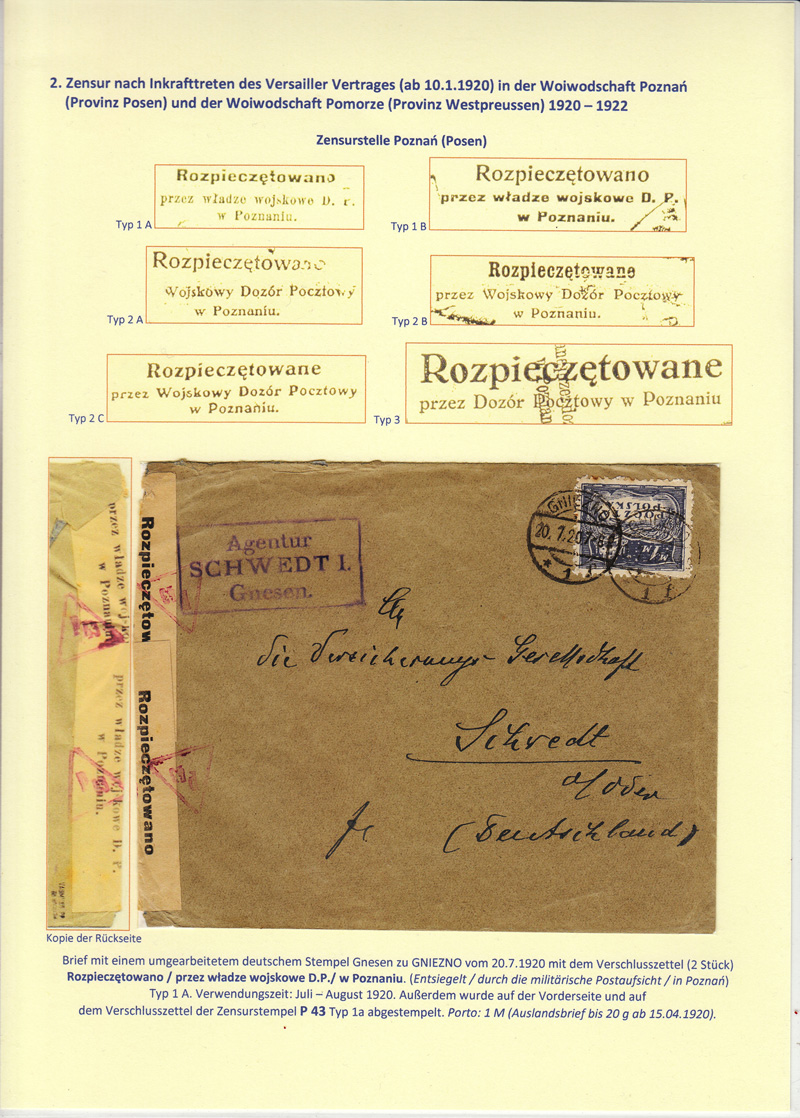 2. Zensur nach Inkrafttreten des Versailler Vertrages (ab 10.1.1920) in der Woiwodschaft Poznań
(Provinz Posen) und der Woiwodschaft Pomorze (Provinz Westpreussen) 1920 – 1922
Zensurstelle Poznań (Posen)
Rozpieczętowano
przez władze wojskowe D. P.
w Poznaniu.
Typ 1 A
Rozpieczętowano
przez władze wojskowe D. P.
w Poznaniu.
Typ 1 B
Rozpieczętowano
Wojskowy Dozór Pocztowy
w Poznaniu.
Typ 2 A
Rozpieczętowane
przez Wojskowy Dozór Pocztowy
w Poznaniu.
Typ 2 B
Rozpieczętowane
przez Wojskowy Dozór Pocztowy
w Poznaniu.
Typ 2 C
Rozpieczętowane
przez Dozór Pocztowy w Poznaniu
Typ 3
przez władze wojsko
w Poznaniu
przez władze wojskowe D. P.
w Poznaniu.
Rozpieczętow
Rozpieczętowano
Agentur
SCHWEDT I.
Gnesen.
GNIEZNO
20. 7. 20
* 1 f
POCZTA
POLSKA
1 f
An
die Versicherungs-Gesellschaft
Schwedt
a/Oder
(Deutschland)
Kopie der Rückseite
Brief mit einem umgearbeitetem deutschem Stempel Gnesen zu GNIEZNO vom 20.7.1920 mit dem Verschlusszettel (2 Stück)
Rozpieczętowano / przez władze wojskowe D.P./ w Poznaniu. (Entsiegelt / durch die militärische Postaufsicht / in Poznań)
Typ 1 A. Verwendungszeit: Juli – August 1920. Außerdem wurde auf der Vorderseite und auf
dem Verschlusszettel der Zensurstempel P 43 Typ 1a abgestempelt. Porto: 1 M (Auslandsbrief bis 20 g ab 15.04.1920).